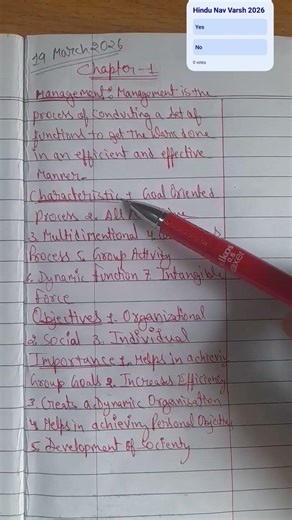 Hindu Nav Varsh 2026
Yes
No
0 votes
19 March 2026
Chapter-1
Management :- Management is the
process of conducting a set of
functions to get the work done
in an efficient and effective
Manner.
Characteristic 1. Goal Oriented
Process 2. All
3. Multidimentional 4.
Process 5. Group Activity
6. Dynamic function 7. Intangible
force
Objectives 1. Organizational
2. Social 3. Individual
Importance 1. Helps in achieving
Group Goals 2. Increases Efficiency
3. Creats a Dynamic Organisation
4. Helps in achieving Personal Objectiv
5. Development of Socienty